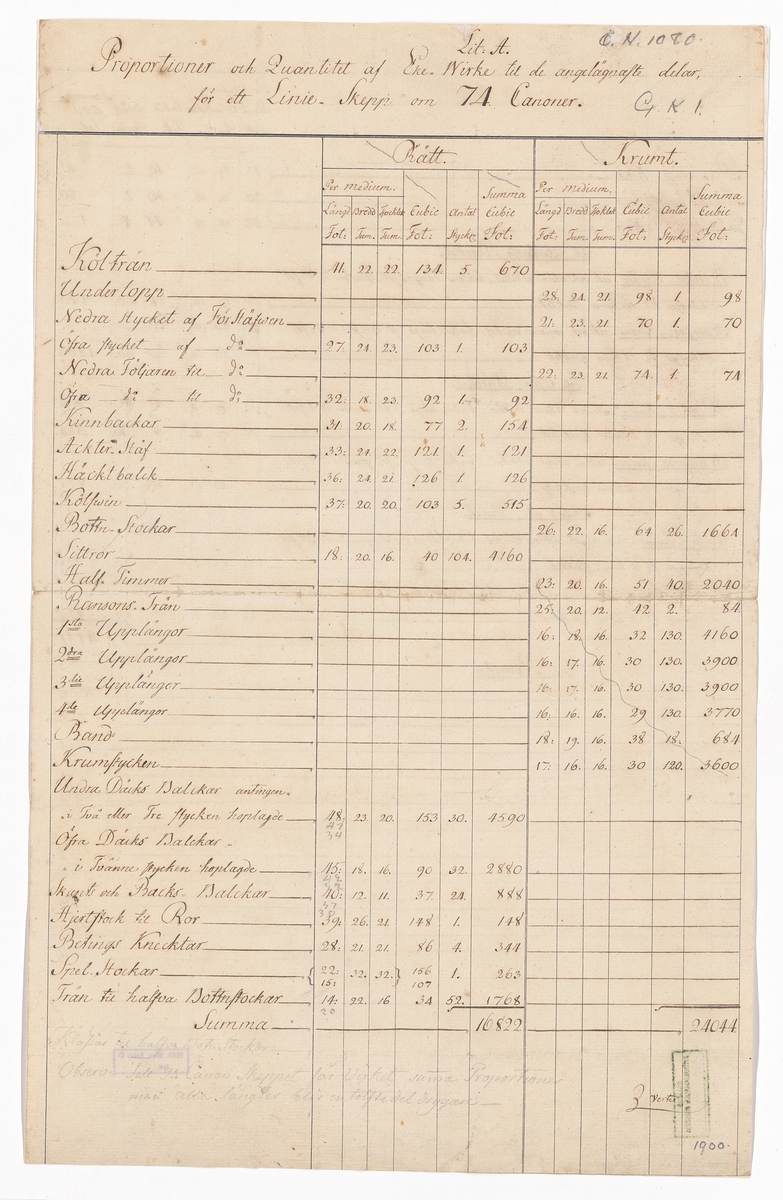 Lit: A. C. N. 1080.
Proportioner och Quantitet af Eke-Wirke til de angelägnaste delar,
för ett Linie-Skepp om 74 Canoner. G K 1.
Rätt. Krumt.
Per medium. Summa Per medium. Summa
Längd Bredd Tjocklek Cubic Antal Cubic Längd Bredd Tjocklek Cubic Antal Cubic
Fot: Tum. Tum. Fot: Stycken Fot: Fot: Tum. Tum. Fot: Stycken Fot:
Költrän 41. 22. 22. 134 5. 670
Underlopp 28. 24. 21. 98 1. 98
Nedra stycket af Förstäfwen 21: 23. 21. 70 1. 70
Öfra stycket af do 27. 24. 23. 103 1. 103
Nedra Följaren til do 22: 23. 21. 74. 1. 74
Öfra do til do 32: 18. 23. 92 1. 92
Kinnbackar 31: 20. 18. 77 2. 154
Ackter-Stäf 33: 24. 22. 121 1. 121
Häcktbalck 36: 24. 21. 126 1. 126
Kölswin 37: 20. 20. 103 5. 515
Bottn-Stockar 26: 22. 16. 64 26. 1664
Sittror 18: 20. 16. 40 104. 4160
Half-Timmer 23: 20. 16. 51 40. 2040
Ransons-Trän 25: 20. 12. 42 2. 84
1sta Upplängor 16: 18. 16. 32 130. 4160
2dra Upplängor 16: 17. 16. 30 130. 3900
3die Upplängor 16: 17. 16. 30 130. 3900
4de Upplängor 16: 16. 16. 29 130. 3770
Band 18: 19. 16. 38 18: 684
Krumstycken 17: 16. 16. 30 120. 3600
Undra Däcks Balckar antingen
i Två eller Tre stycken hoplagde 48: 23. 20. 153 30. 4590
47
34
Öfra Däcks Balckar
i Tvänne stycken hoplagde 45: 18. 16. 90 32. 2880
Skants och Backs-Balckar 40: 12. 11. 37. 24. 888
37
Hjertstock til Ror 39: 26. 21. 148 1. 148
Betings Knecktar 28: 21. 21. 86 4. 344
Spel-Stockar { 22: 32. 32. } 156 1. 263
15: 107
Trän til halfva Bottnstockar 14: 22. 16 34 52. 1768
20
Summa 16822 24044
halfva Bott. Stockar
Observ: Canon Skeppet får Wirket samma Proportioner
men alla längder blir en tolftedel drygare
verte
1900.